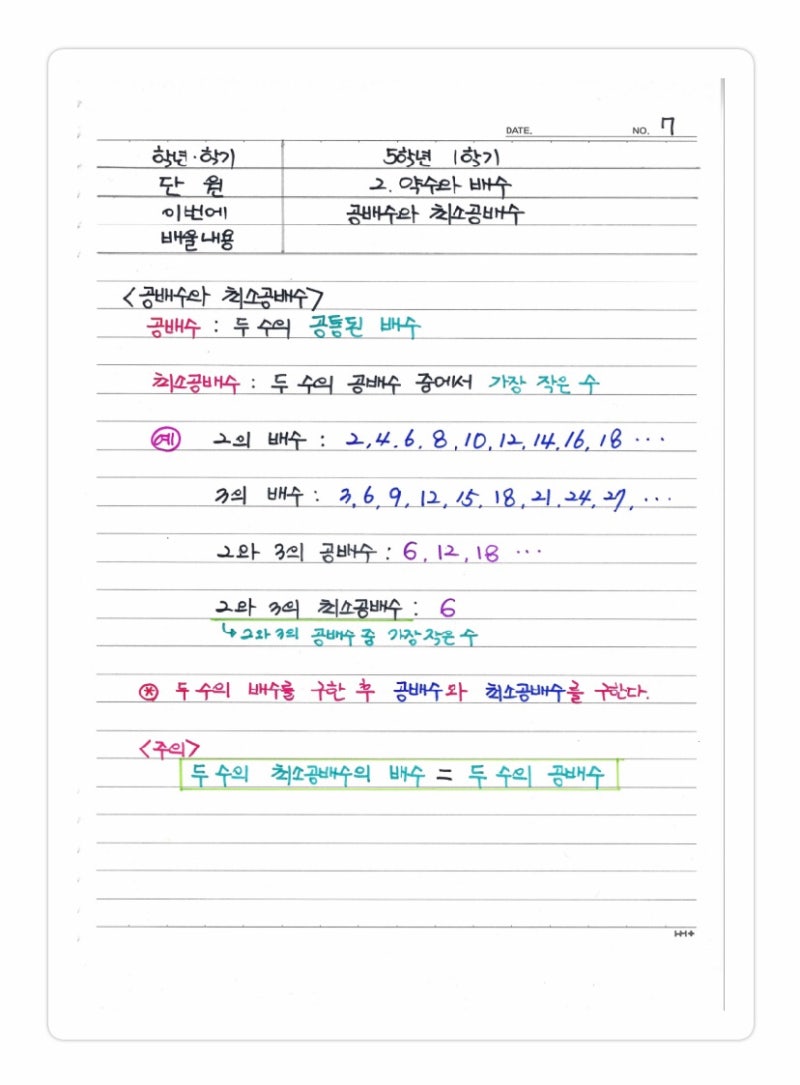 DATE. NO. 7
학년·학기 5학년 1학기
단 원 2. 약수와 배수
이번에 공배수와 최소공배수
배울내용
<공배수와 최소공배수>
공배수 : 두 수의 공통된 배수
최소공배수 : 두 수의 공배수 중에서 가장 작은 수
예 2의 배수 : 2, 4. 6. 8, 10, 12, 14, 16, 18 ···
3의 배수 : 3, 6, 9, 12, 15, 18, 21, 24, 27, ···
2와 3의 공배수 : 6, 12, 18 ···
2와 3의 최소공배수 : 6
↳ 2와 3의 공배수 중 가장 작은 수
※ 두 수의 배수를 구한 후 공배수와 최소공배수를 구한다.
<주의>
두 수의 최소공배수의 배수 = 두 수의 공배수